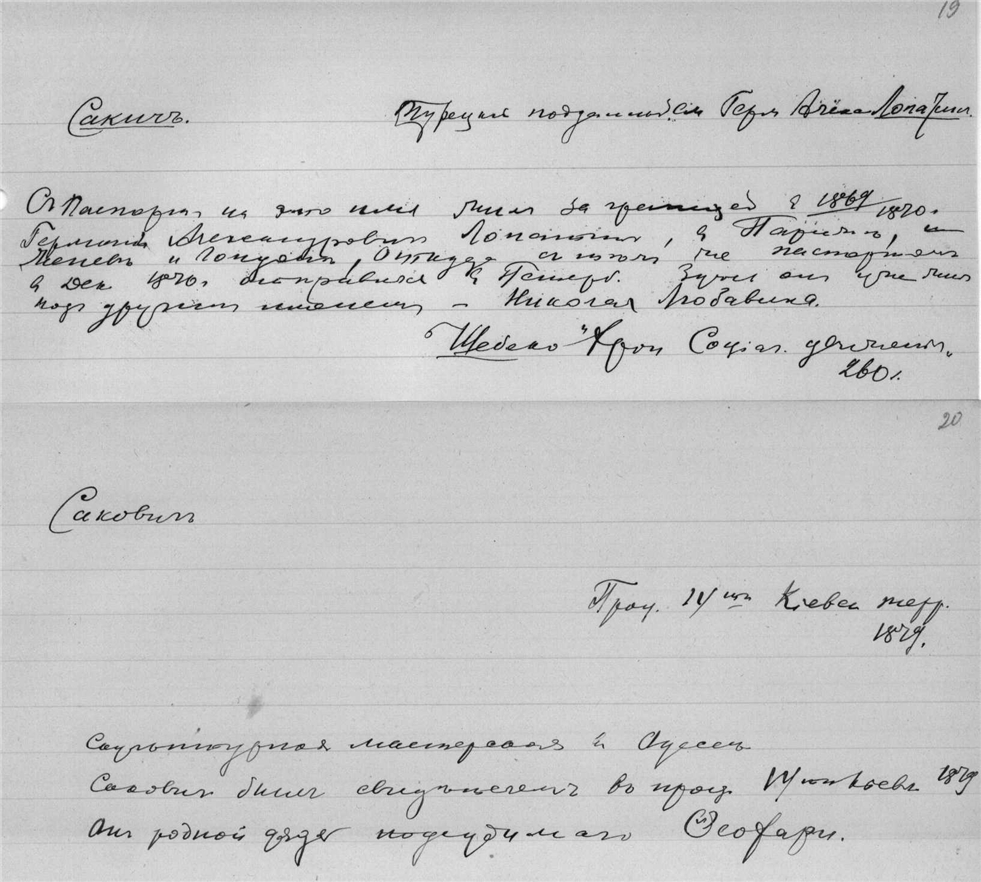 19
Сакичъ.
Турецкий подданный см Герм Алекса Лопатин.
Съ паспортъ на это имя жилъ за границей в 1869/1870 г
Германъ Александровичъ Лопатинъ, в Парижѣ, и
Женевѣ и Лондонѣ, Откуда съ этимъ же паспортомъ
в Дек 1870 г. отправился въ Петерб. Здѣсь онъ уже жилъ
подъ другимъ именемъ – Николая Любавина.
Шебеко "Хрон Соціал. движенія„
260 с.
20
Саковичъ
Проц. 14 ти Кіевск терр.
1879.
Скульптурная мастерская в Одессѣ
Саковичъ былъ свидѣтелемъ во проц. 14 ти Кіевск 1879
Онъ родной дядя подсудимаго Феохари.